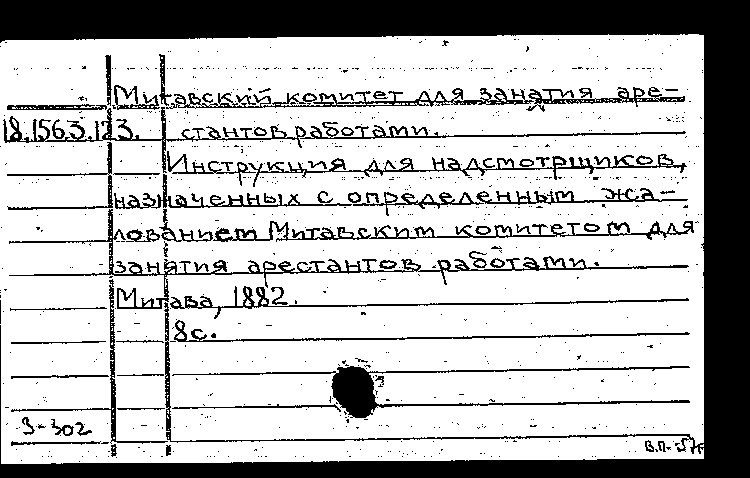 Митавский комитет для занятия аре-
18.1563.123. стантов работами.
Инструкция для надсмотрщиков,
назначенных с определенным жа-
лованием Митавским комитетом для
занятия арестантов работами.
Митава, 1882.
8с.
3-302
В.П.-